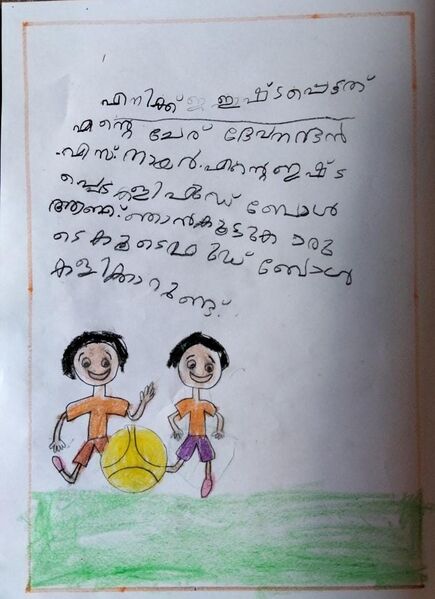 എനിക്ക് ഇഷ്ടപ്പെട്ടത്
എന്റെ പേര് ദേവനന്ദൻ
.എസ്.നായർ.എന്റെ ഇഷ്ട
പ്പെട്ട കളി ഫുഡ് ബോൾ
ആണ്.ഞാൻ കൂട്ടുകാരു
ടെ കൂടെ ഫുഡ് ബോൾ
കളിക്കാറുണ്ട്.